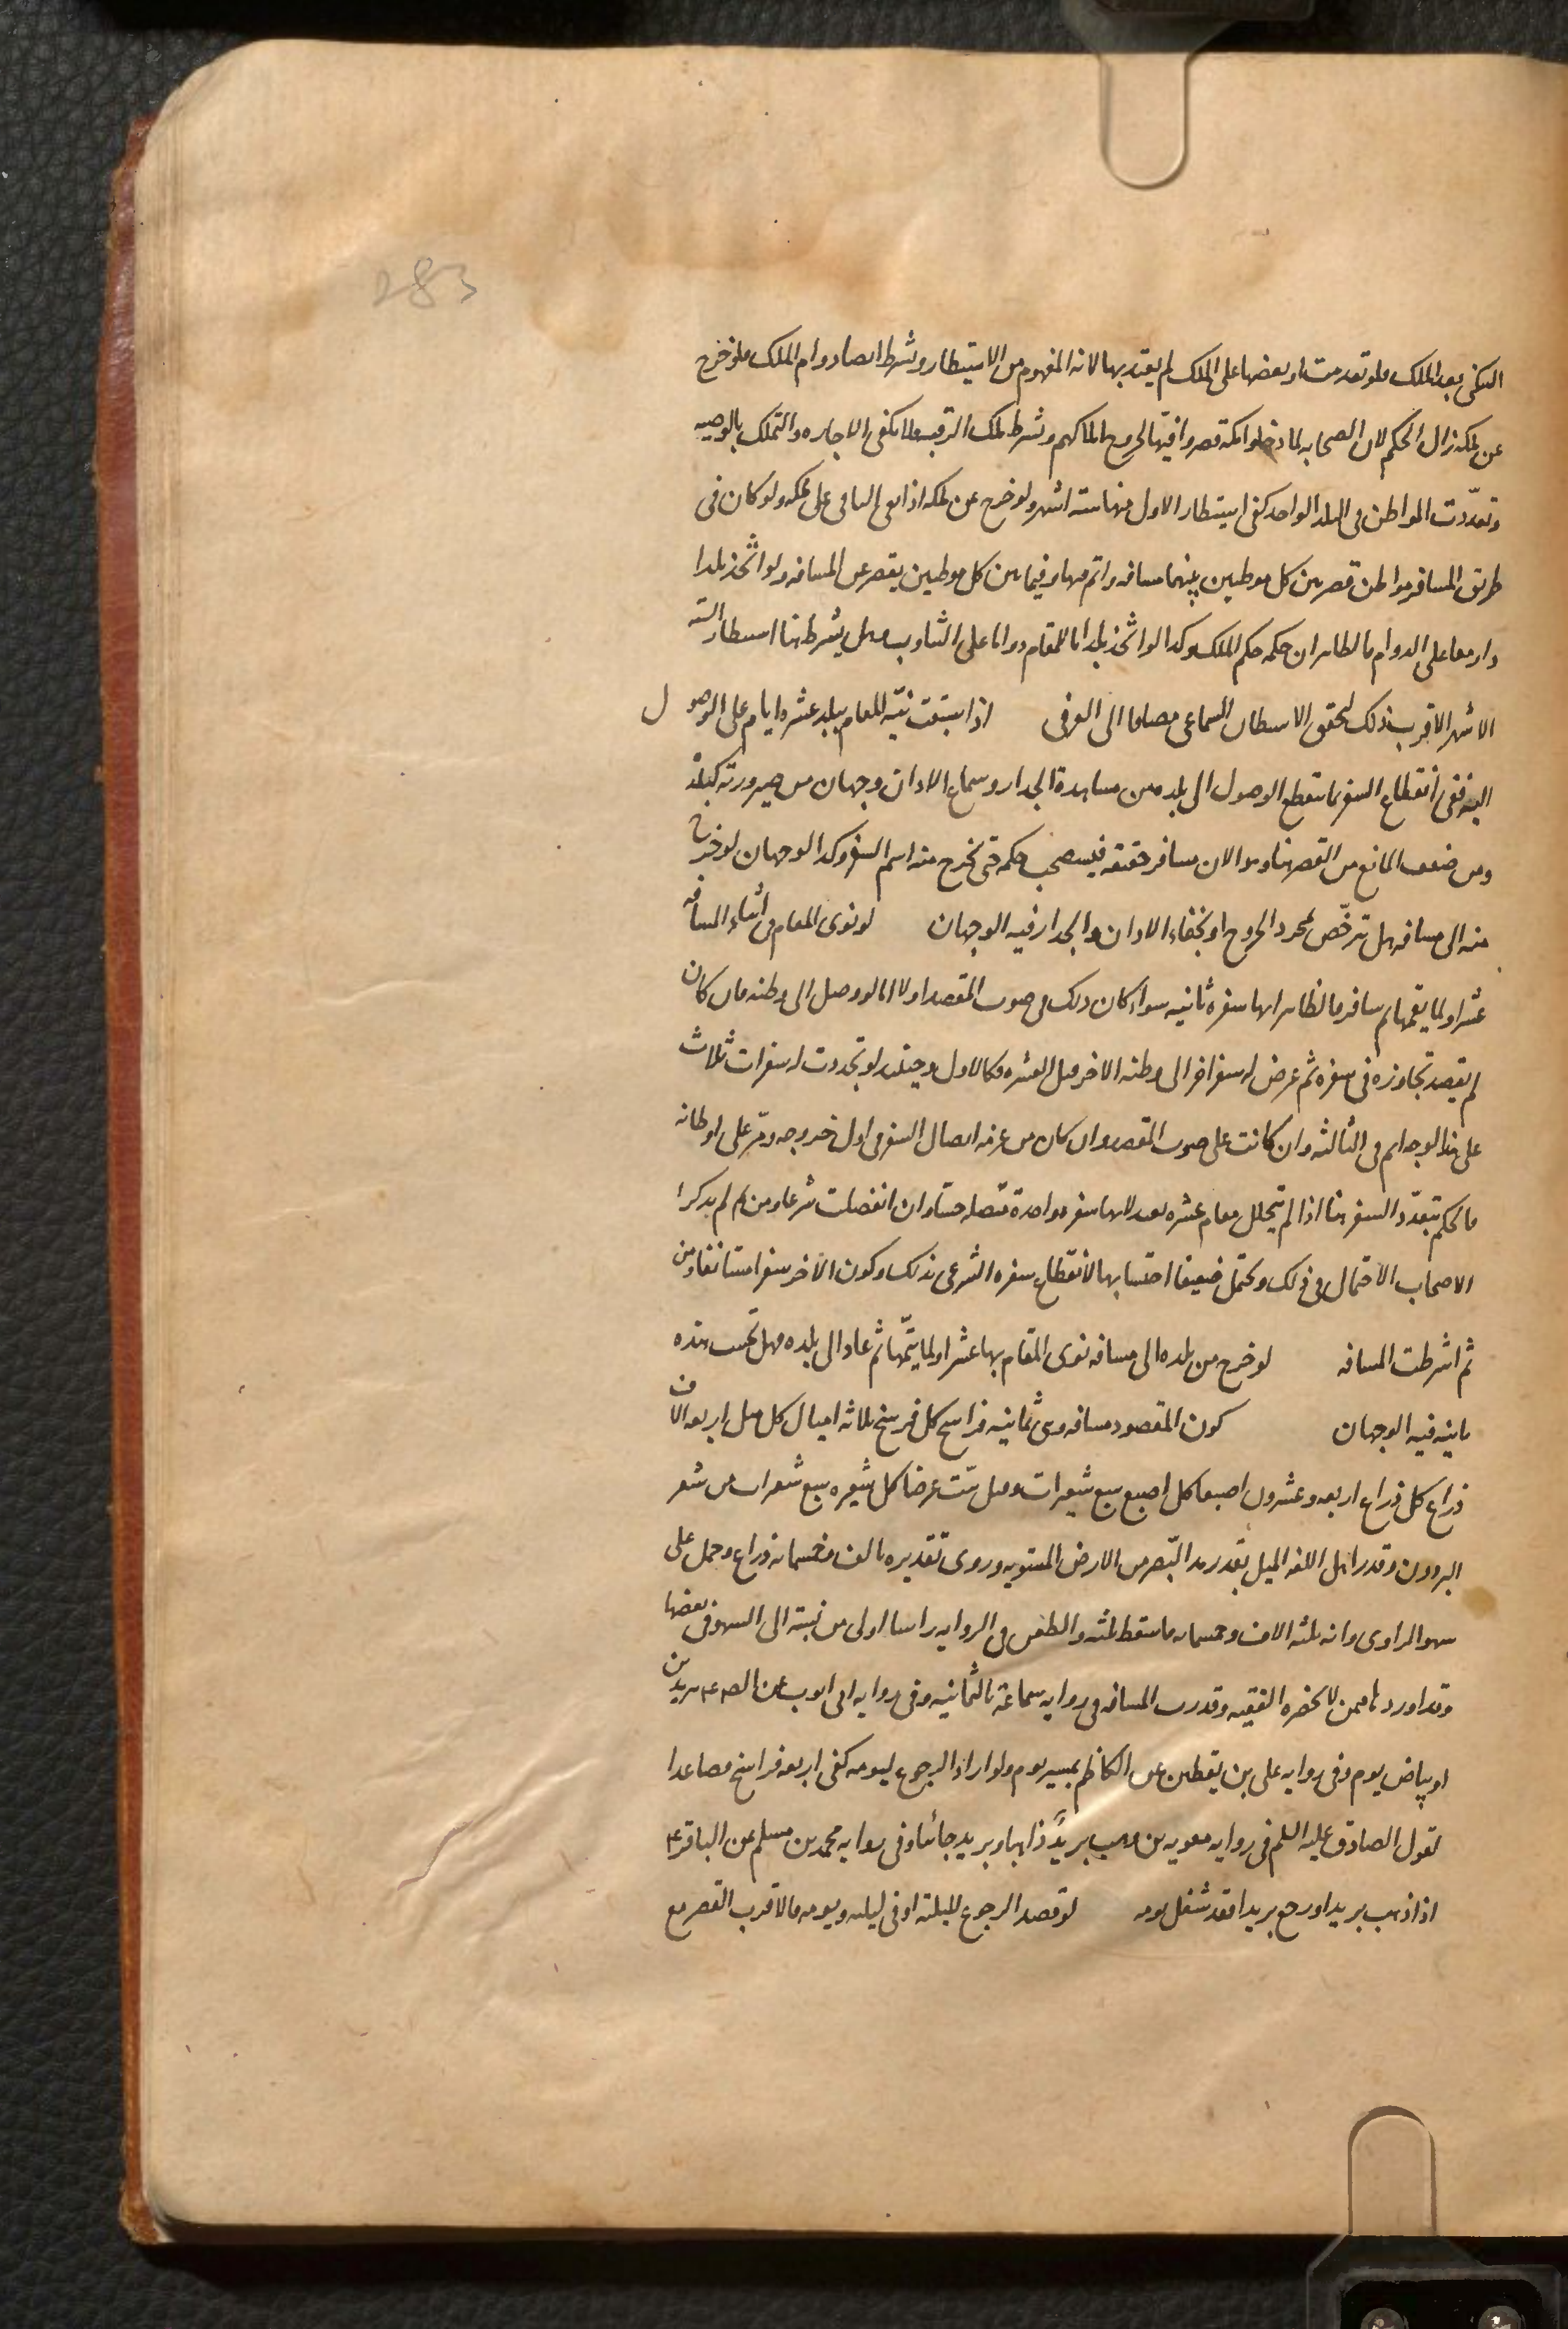 283
السكنى بعد الملك فلو تقدمت او بعضها على الملك لم يعتد بها لانه المفهوم من الاستيطان ويشترط ايضا دوام الملك فلو خرج
عن ملكه زال الحكم لان الصحابه لما دخلوا مكه قصروا فيها لخروج املاكهم ويشترط ملك الرقبه فلا تكفى الاجاره والتملك بالوصيه
وتعددت المواطن فى البلد الواحد كفى استيطان الاول منها سته اشهر ولو خرج عن ملكه اذا بقى الباقى على ملكه ولو كان فى
طريق المسافر مواطن قصر بين كل موطنين بينهما مسافه واتم فيها وفيما بين كل موطنين يقصر عن المسافه ولو اتخذ بلدا
دار مقامه على الدوام فالظاهر ان حكمه حكم الملك وكذا لو اتخذ بلدانا للمقام دواما على التناوب وهل يشترط هنا استيطان السته
الاشهر الاقرب ذلك لتحقق الاستيطان السماعى مضافا الى العرفى اذا سبقت نيه المقام ببلد عشره ايام على الوصول
اليه ففى انقطاع السفر بما ينقطع الوصول الى بلده من مشاهدة الجدار وسماع الاذان وجهان من صيرورته كبلده
ومن ضعف المانع من القصر هنا وهو الان مسافر حقيقه فيستصحب حكمه حتى يخرج منه اسم السفر وكذا الوجهان لو خرج
منه الى مسافه هل يترخص بمجرد الخروج او بخفاء الاذان والجدار فيه الوجهان لو نوى المقام فى اثناء المسافه
عشرا ولما يقمها ثم سافر فالظاهر انها سفره ثانيه سواء كان ذلك فى صوب المقصد اولا اما لو وصل الى وطنه فان كان
لم يقصد تجاوزه فى سفره ثم عرض له سفر اخر الى وطنه الاخر قبل العشره فكالاول وحينئذ لو تجددت له سفرات ثلاث
على هذا الوجه اتم فى الثالثه وان كانت على صوب المقصد وان كان من عزمه اتصال السفر فى اول خروجه ومر على اوطانه
فالحكم بتعدد السفر هنا اذا لم يتخلل مقام عشره بعيد لانها سفره واحدة متصله حسا وان انفصلت شرعا ومن ثم لم يذكر
الاصحاب الاحتمال فى ذلك ويحتمل ضعيفا احتسابها لانقطاع سفره الشرعى بذلك وكون الاخر سفرا مستانفا ومن
ثم اشترطت المسافه لو خرج من بلده الى مسافه نوى المقام بها عشرا ولما يتمها ثم عاد الى بلده فهل تحسب هذه
ثانيه فيه الوجهان كون المقصود مسافه وهى ثمانيه فراسخ كل فرسخ ثلاثه اميال كل ميل اربعه الاف
ذراع كل ذراع اربعه وعشرون اصبعا كل اصبع سبع شعيرات وقيل ست عرضا كل شعيره سبع شعرات من شعر
البرذون وقدر اهل اللغه الميل بقدر مد البصر من الارض المستويه وروى تقديره بالف وخمسمائه ذراع وحمل على
سهو الراوى وانه ثلثه الاف وخمسمائه فاسقط ثلثه والطعن فى الروايه راسا اولى من نسبته الى السهو فى بعضها
وقد اوردها فيمن لا يحضره الفقيه وقدرت المسافه فى روايه سماعة بالثمانيه وفى روايه ابى ايوب عن الص ع ببريدين
او بياض يوم وفى روايه على بن يقطين عن الكاظم بمسير يوم ولو اراد الرجوع ليومه كفى اربعه فراسخ فصاعدا
لقول الصادق عليه السلم فى روايه معويه بن وهب بريد ذاهبا وبريد جائيا وفى روايه محمد بن مسلم عن الباقر ع
اذا ذهب بريدا ورجع بريدا فقد شغل يومه لو قصد الرجوع لليلته او فى ليلته ويومه فالاقرب القصر مع